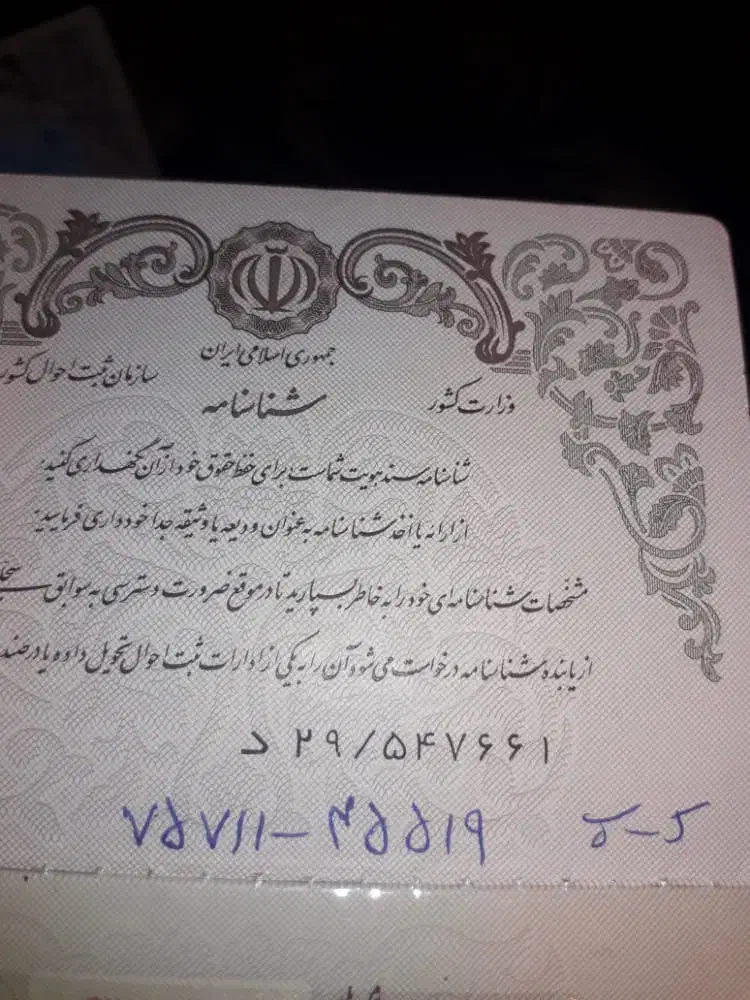 جمهوری اسلامی ایران
وزارت کشور
سازمان ثبت احوال کشور
شناسنامه
شناسنامه سند هویت شماست برای حفظ حقوق خود از آن نگهداری کنید.
از ارائه یا اخذ شناسنامه به عنوان ودیعه یا وثیقه جدا خودداری فرمایید.
مشخصات شناسنامه‌ای خود را به خاطر بسپارید تا در موقع ضرورت دسترسی به سوابق
از یابنده شناسنامه درخواست می‌شود آن را به یکی از ادارات ثبت احوال تحویل داده یا در صند
د ۲۹/۵۴۷۶۶۱
۷۵۷۱۱-۴۵۵۱۹